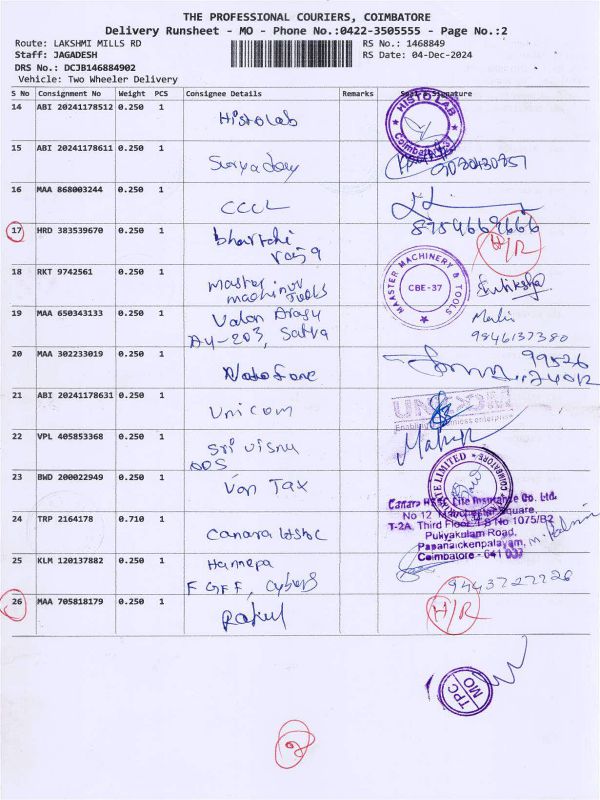 THE PROFESSIONAL COURIERS, COIMBATORE
Delivery Runsheet - MO - Phone No.:0422-3505555 - Page No.:2
Route: LAKSHMI MILLS RD
RS No.: 1468849
Staff: JAGADESH
RS Date: 04-Dec-2024
DRS No.: DCJB146884902
Vehicle: Two Wheeler Delivery
S No Consignment No Weight PCS Consignee Details Remarks Signature
14 ABI 20241178512 0.250 1 Histolab
HISTO LAB
Coimbatore-37
15 ABI 20241178611 0.250 1
16 MAA 868003244 0.250 1 CCCL
8754669666
17 HRD 383539670 0.250 1 bharathi
raja
H/R
18 RKT 9742561 0.250 1 master
machinur
Tools
MASTER MACHINERY & TOOLS
CBE-37
19 MAA 650343133 0.250 1 Valan Arasu
AY-203, Satva
9846137380
20 MAA 302233019 0.250 1
99526
21 ABI 20241178631 0.250 1 Unicom
UNICOM
22 VPL 405853368 0.250 1 Sri Visnu
ADS
23 BWD 200022949 0.250 1 Van Tax
24 TRP 2164178 0.710 1 Canara HSBC
Canara HSBC Life Insurance Co. Ltd.
No 12, Manchester Square,
T-2A, Third Floor, T.S No 1075/B2
Puliyakulam Road,
Papanaickenpalayam,
Coimbatore - 641 037
25 KLM 120137882 0.250 1
F GFF, Cyber
9443727226
26 MAA 705818179 0.250 1 Rahul
H/R
TPC
MO
2